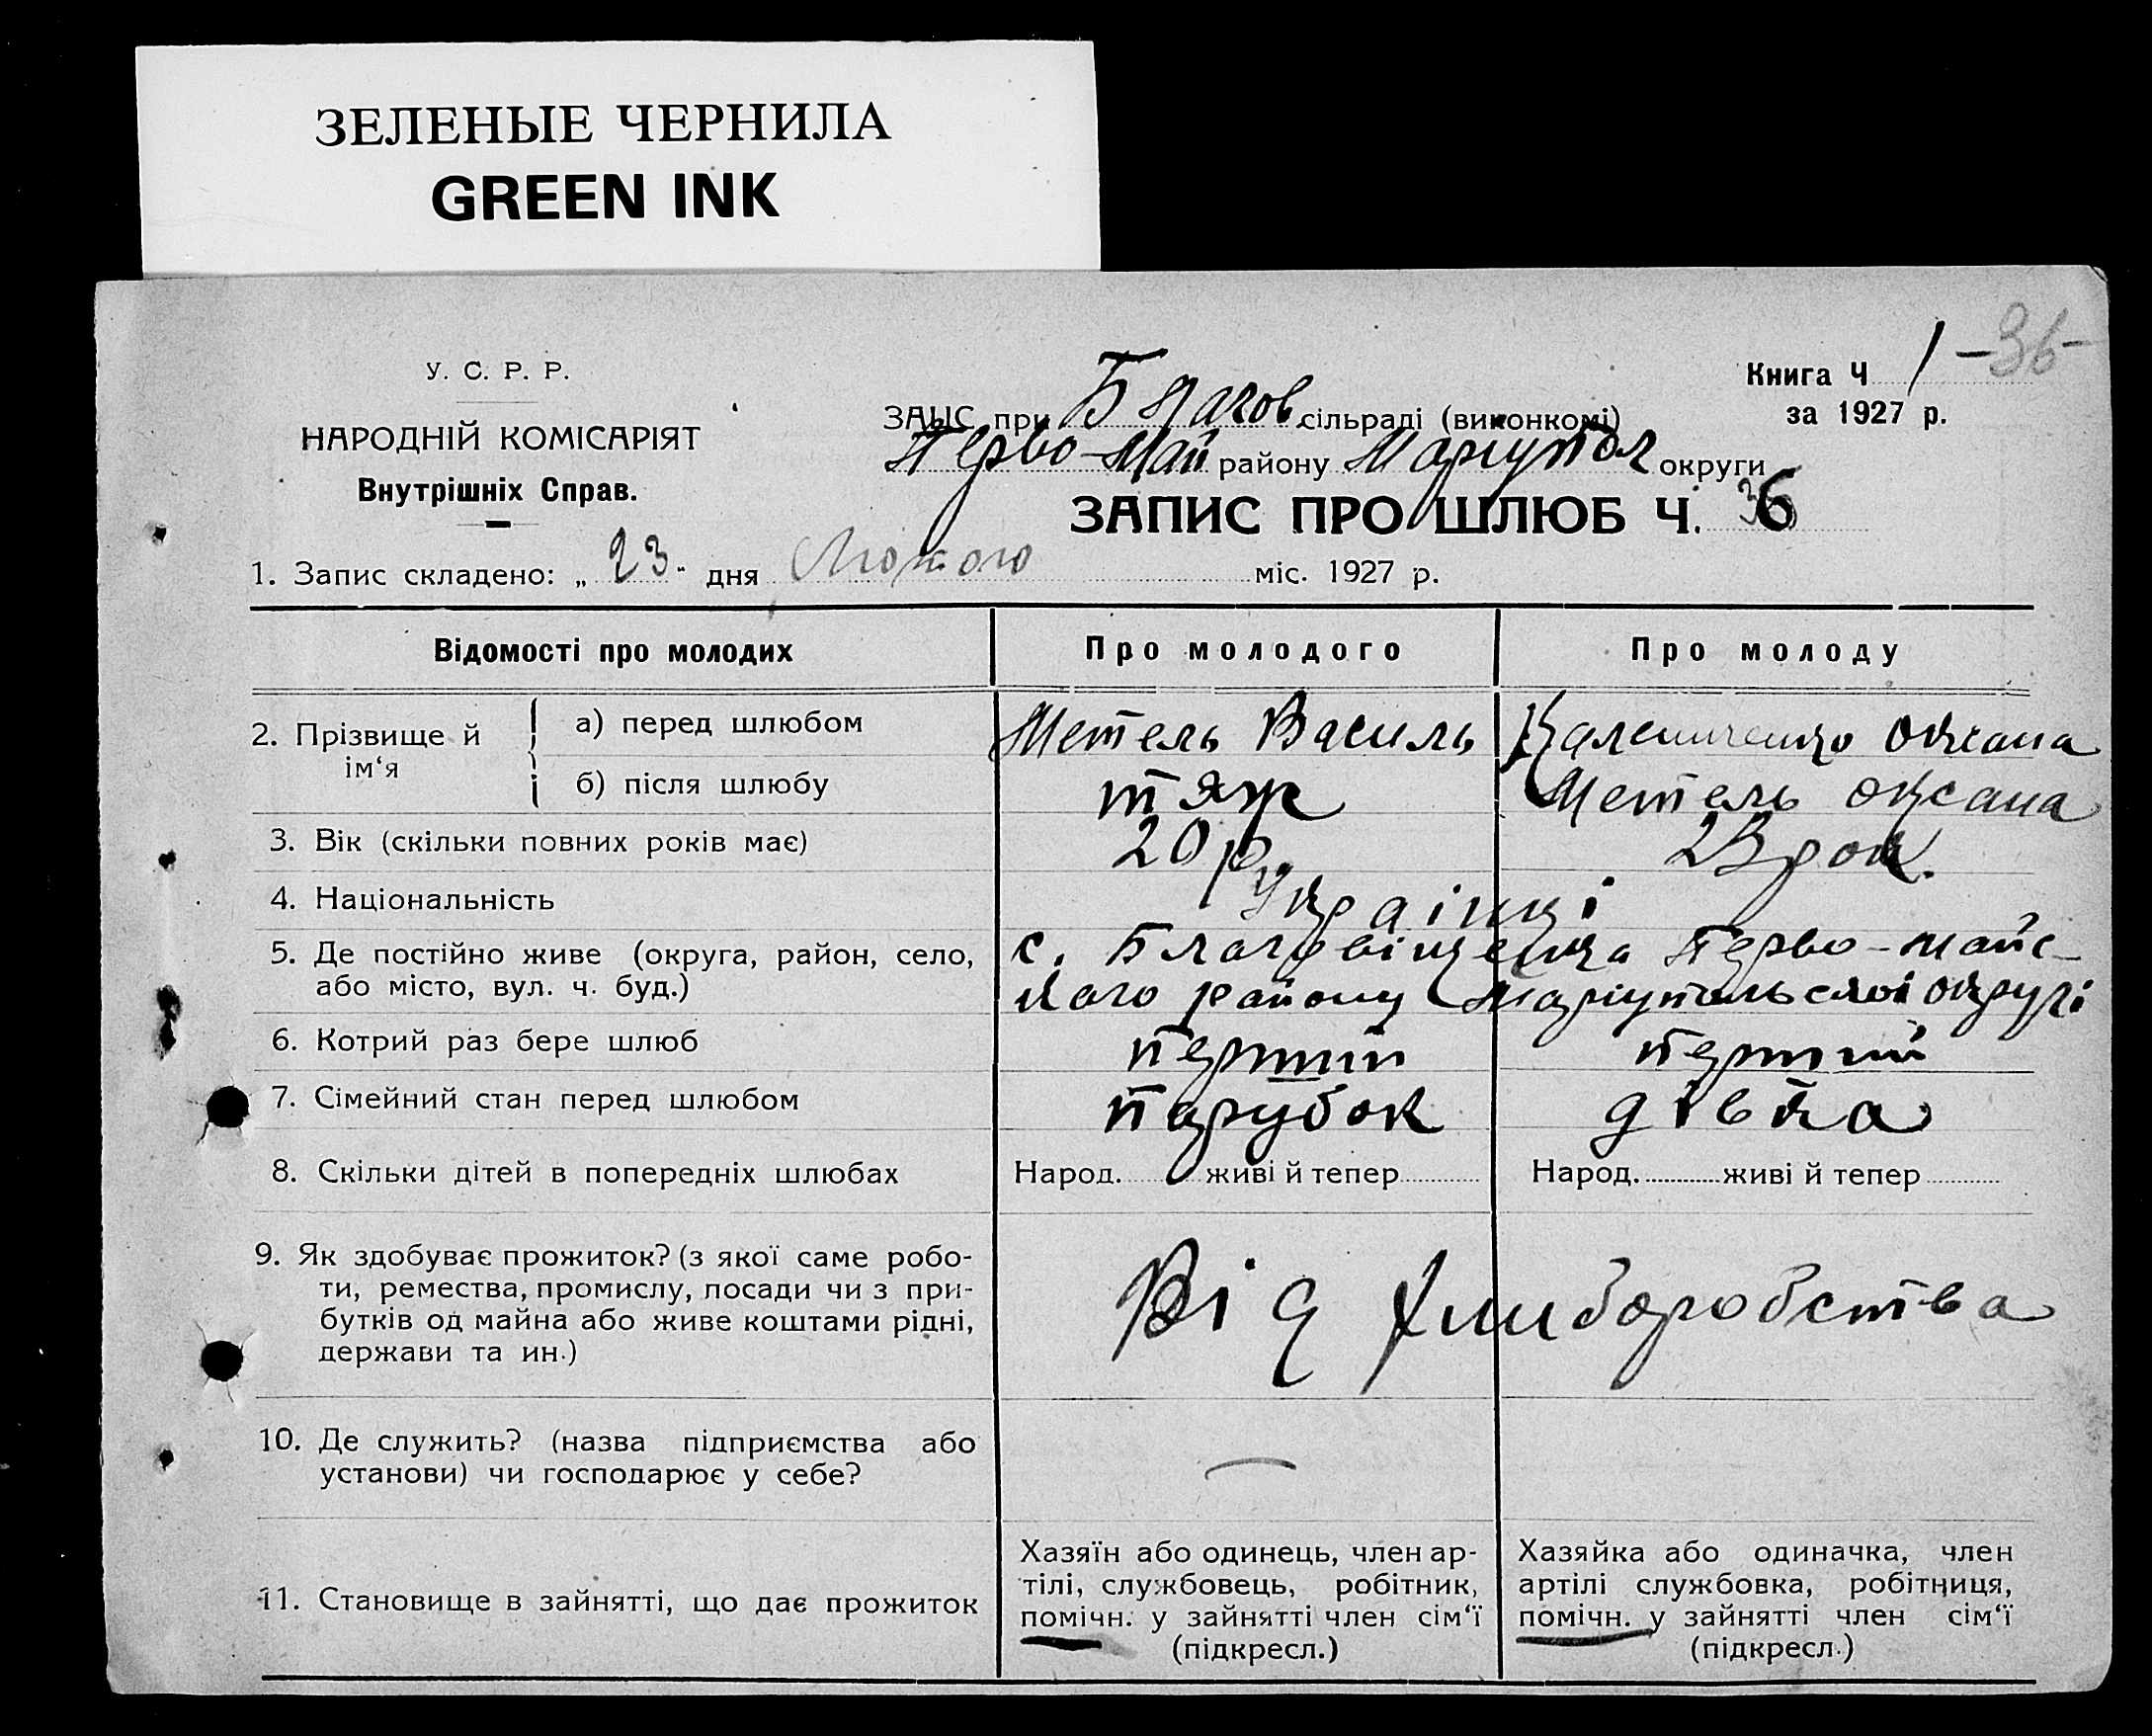 ЗЕЛЕНЫЕ ЧЕРНИЛА
GREEN INK
У. С. Р. Р.
НАРОДНІЙ КОМІСАРІЯТ
Внутрішніх Справ.
Книга Ч 1 -36-
за 1927 р.
ЗАГС при Благов сільраді (виконкомі)
Перво-Май району Маріупол округи
ЗАПИС ПРО ШЛЮБ Ч. 36
1. Запис складено: „23" дня Лютого міс. 1927 р.
Відомості про молодих Про молодого Про молоду
2. Прізвище й ім'я а) перед шлюбом Метель Василь Оксана
б) після шлюбу теж Метель Оксана
3. Вік (скільки повних років має) 20 р. 23 рок.
4. Національність Українці
5. Де постійно живе (округа, район, село, с. Благовіщенка Перво-майс-
або місто, вул. ч. буд.) кого району Маріупольскої округі
6. Котрий раз бере шлюб перший перший
7. Сімейний стан перед шлюбом парубок дівка
8. Скільки дітей в попередніх шлюбах Народ. живі й тепер Народ. живі й тепер
9. Як здобуває прожиток? (з якої саме робо-
ти, ремества, промислу, посади чи з при-
бутків од майна або живе коштами рідні,
держави та ин.)
Від хлиборобства
10. Де служить? (назва підприємства або
установи) чи господарює у себе?
—
11. Становище в зайнятті, що дає прожиток
Хазяїн або одинець, член ар-
тілі, службовець, робітник,
помічн. у зайнятті член сім'ї
(підкресл.)
Хазяйка або одиначка, член
артілі службовка, робітниця,
помічн. у зайнятті член сім'ї
(підкресл.)